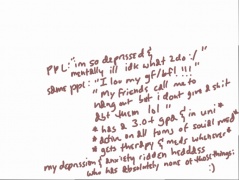 PPL: "im so depressed &
mentally ill idk what 2do :/ "
same ppl: "I luv my gf/bf! !!! "
" My friends call me to
hang out but i dont give a shit
abt them lol "
* has a 3.0+ gpa & in uni *
* active on all forms of social med *
* gets therapy & meds whatever *
my depression & anxiety ridden headass
who has absolutely none of those things:
:)